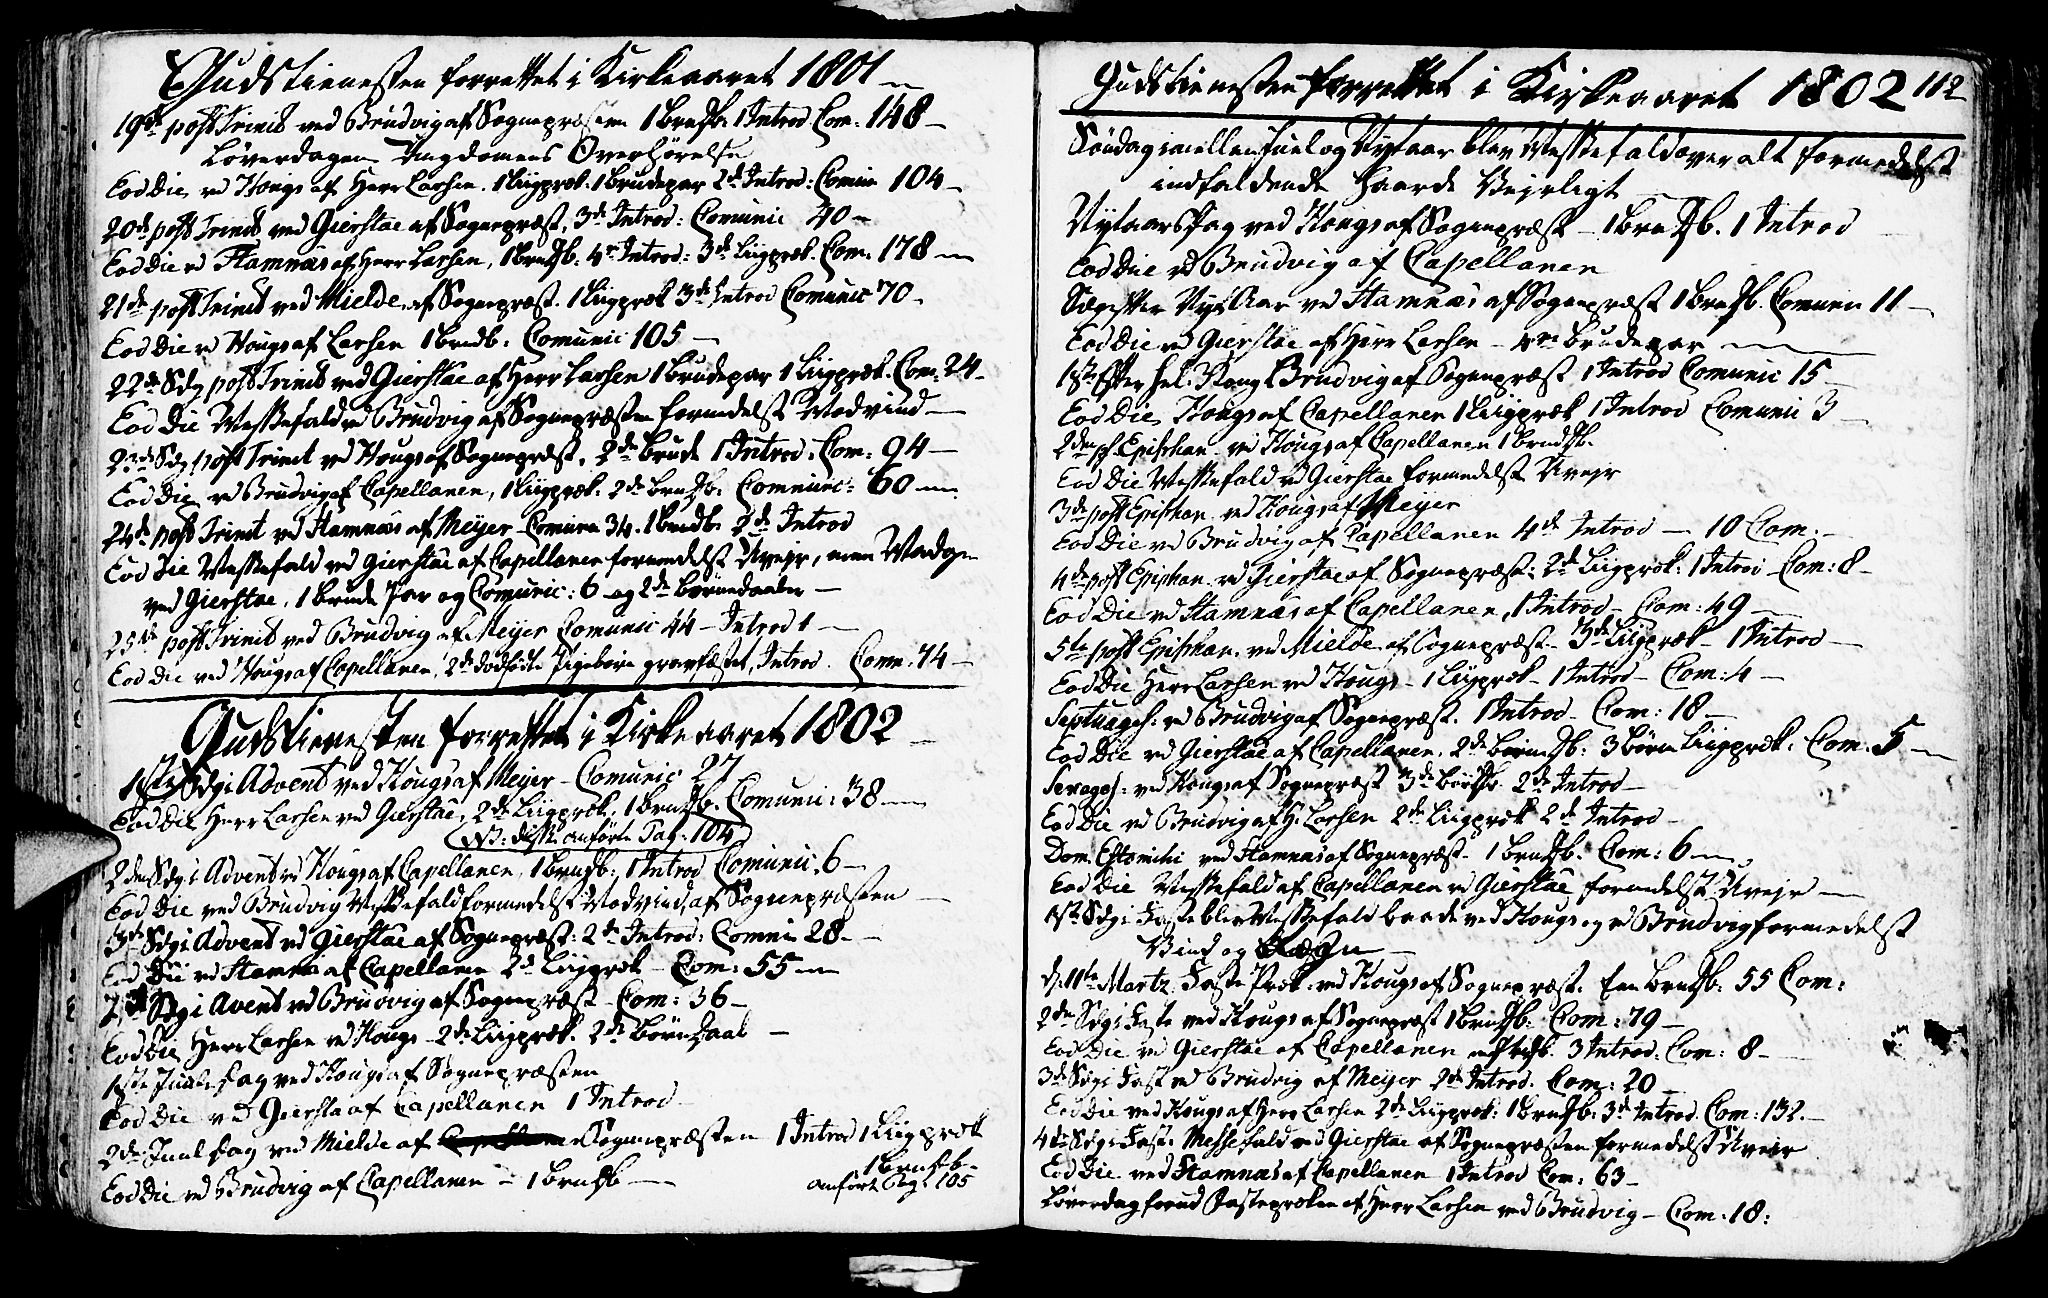 Gudstienesten forrettet i Kirkeaaret 1801
19de post Trinit ved Brudvig af Sognepræsten 1 Brudb. 1 Introd Com: 148
Løverdagen Ungdomens Overhørelse
Eod Die ved Hougs af Herr Larsen. 1 Liigpræk. 1 Brudepar 2de Introd: Comun 104
20de post Trinit ved Gierstae af Sognepræst, 3de Introd: Comunic 40
Eod Die vd Stamnæs af Herr Larsen, 1 Brudb. 4re Introd: 3de Liigpræk. Com: 178
21de post Trinit ved Mielde af Sognepræst. 1 Liigpræk 3de Introd Comunic 70
Eod Die vd Hougs af Larsen 1 Barnb. Comunic 105
22de Sdg post Trinit ved Gierstae af Herr Larsen 1 Brudepar 1 Liigpræk. Com: 24
Eod Die Messefald vd Brudvig af Sognepræsten formedelst Modvind
23de Sdg post Trinit ved Hougs af Sognepræst. 2de Brude 1 Introd: Com: 94
Eod Die vd Brudvig af Capellanen, 1 Liigpræk. 2de Barnedb. Comunic: 60
24de post Trinit vd Stamnæs af Meyer Comun 34. 1 Barnedb. 2de Introd
Eod Die Messefald ved Gierstae af Capellanen formedelst Uvejr, men Mandagen
ved Gierstae, 1 Brude Par og Comunic: 6 og 2de Børnedaaber
25de post Trinit ved Brudvig af Meyer Comunic 44 Introd 1
Eod Die ved Hougs af Capellanen, 2de dødfødte Pigebørn gravfæstet, Introd. Comn. 74
Gudstienesten forrettet i Kirkeaaret 1802
1ste Sdg i Advent ved Hougs af Meyer Comunic 27
Eod Die Herr Larsen ved Gierstae, 2de Liigpræk. 1 Barndb. Comunic: 38
NB: anført Pag. 104
2den Sdg i Advent vd Hougs af Capellanen, 1 Barndb: 1 Introd Comunic. 6
Eod Die ved Brudvig Messefald formedelst Modvind af Sognepræsten
3de Sdg i Advent vd Gierstae af Sognepræst: 2de Introd: Comni 28
Eod Die vd Stamnæs af Capellanen 2de Liigpræk Com: 55
Sdg i Avent vd Brudvig af Sognepræst Com: 36
Eod Die Herr Larsen vd Hougs 2de Liigpræk. 2de Børn Daab
1ste Juuledag ved Hougs af Sognepræsten
Eod Die ved Gierstae af Capellanen 1 Introd
2den Juuledag ved Mielde af Sognepræsten 1 Introd 1 Liigpræk
1 Barndb
Eod Die vd Brudvig af Capellanen 1 Barndb anført Pag. 105
Gudstienesten forrettet i Kirkeaaret 1802 112
Søndag imellem Juul og Nytaar blev Messefald over alt formedelst
indfaldende haarde Vejrligt
Nytaarsdag ved Hougs af Sognepræst 1 Barndb. 1 Introd
Eod Die vd Brudvig af Capellanen
Sdg efter Nyt Aar ved Stamnæs af Sognepræst 1 Barndb. Comun 11
Eod Die vd Gierstae af Herr Larsen Brudepar
1ste Efter hel. 3 Kong Brudvig af Sognepræst 1 Introd Comunic 15
Eod Die Hougs af Capellanen 1 Liigpræk 1 Introd Comunic 3
2den p. Epiphan. ved Hougs af Capellanen 1 Barndb.
Eod Die Messefald vd Gierstae formedelst Uvejr
3de post Epiphan. ved Hougs af Meyer
Eod Die vd Brudvig af Capellanen 4de Introd 10 Com:
4de post Epiphan. vd Gierstae af Sognepræst: 2de Liigpræk: 1 Introd Com: 8
Eod Die vd Stamnæs af Capellanen, 1 Introd Com: 49
5te post Epiphan. ved Mielde af Sognepræst 3de Liigpræk 1 Introd
Eod Die Herr Larsen vd Hougs 1 Liigpræk 1 Introd Com: 4
Septuages: vd Brudvig af Sognepræst. 1 Introd Com: 18
Eod Die vd Gierstae af Capellanen. 2de Barndb: 3 Børn Liigpræk: Com: 5
Sexages: ved Hougs af Sognepræst 3de Børdb 2de Introd
Eod Die vd Brudvig af H. Larsen 2de Liigpræk 2de Introd
Dom. Estomihi ved Stamnæs af Sognepræst. 1 Barndb. Com: 6
Eod Die Messefald af Capellanen vd Gierstae formedelst Uvejr
1ste Sdg i Faste blev Messefald baade ved Hougs og vd Brudvig formedelst
Vind og
d. 11te Martz Faste Præk. ved Hougs af Sognepræst. Een Barndb: 55 Com:
2den Sdg i Faste ved Hougs af Sognepræst 1 Barndb: Com: 79
Eod Die vd Gierstae af Capellanen 3 Introd. Com: 8
3de Sdg i Fast vd Brudvig af Meyer 2de Introd. Com: 20
Eod Die ved Hougs af Herr Larsen 2de Liigpræk: 1 Barndb: 3de Introd Com: 132.
4de Sdg i Fast: Messefald ved Gierstae af Sognepræsten formedelst Uvejr
Eod Die ved Stamnæs af Capellanen 1 Introd Com: 63
Løverdag forud Fasteprækn af Herr Larsen ved Brudvig Com: 18: